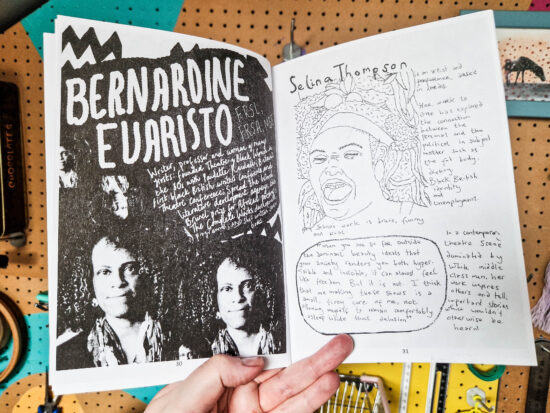 BERNARDINE
EVARISTO
FRSL,
FRSA,
Writer, professor and woman of many
works: founded Theatre of Black Women in
the 80s with Paulette Randall, Britain's
first black British writers conference and
theatre conference, Spread the Word
literature development agency, the
Brunel prize for African poetry,
The Complete Works
30
Selina Thompson
is an artist and
performer based
in Leeds.
Her work to
date has explored
the connection
between the
personal and the
political in subject
matter such as
the fat body
Black British
identity
and
Unemployment.
work is brave, funny
and
When you are so far outside
the dominant beauty ideals that
your society renders you both hyper-
visible and invisible, it can almost feel
like freedom. But it is not. I think
that me making these shows is a
small, firm cry of me, not
allowing myself to remain comfortably
asleep inside that delusion"
In a contemporary
theatre scene
dominated by
White middle
class men, her
work inspires
others and tells
important stories
which wouldn't
otherwise be
heard
31
CHOCOLATES